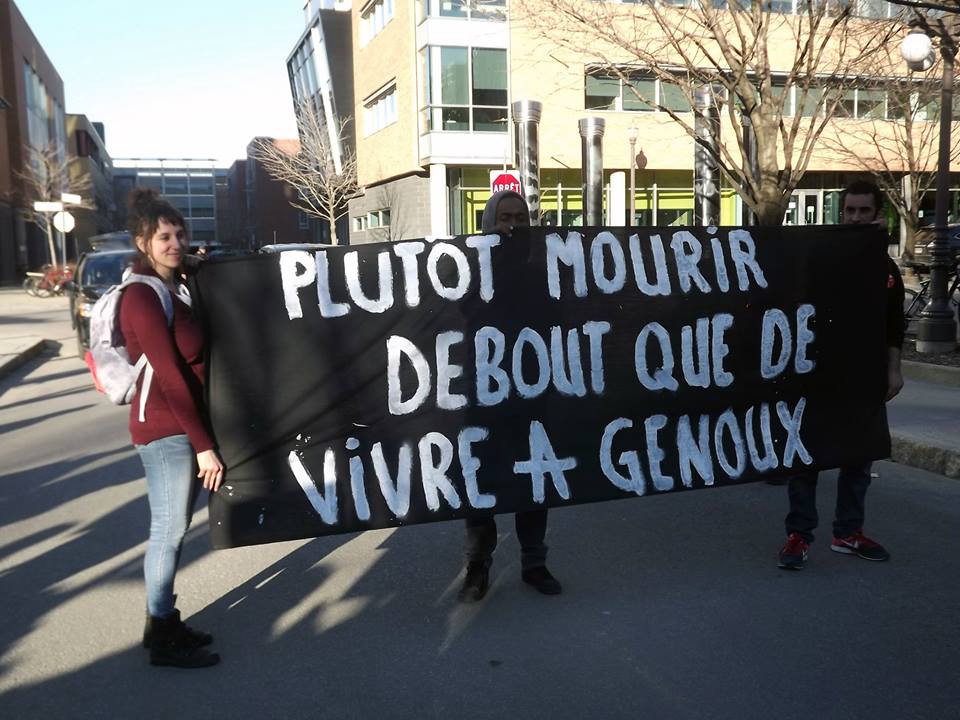 ARRÊT
PLUTÔT MOURIR
DEBOUT QUE DE
VIVRE A GENOUX